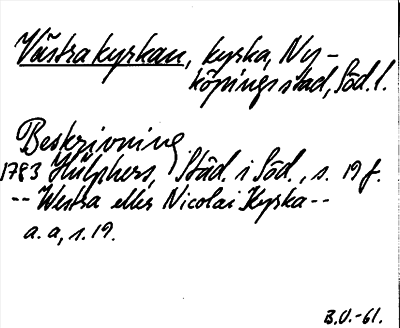 Västra kyrkan, kyrka, Ny-
köpings stad, Söd. l.
Beskrivning
1783 Hülphers, Städ. i Söd., s. 19 f.
-- Westra eller Nicolai Kyrka --
a. a, s. 19.
B.U.-61.